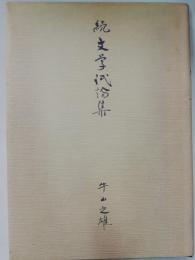 続文学試論集
牛山之雄